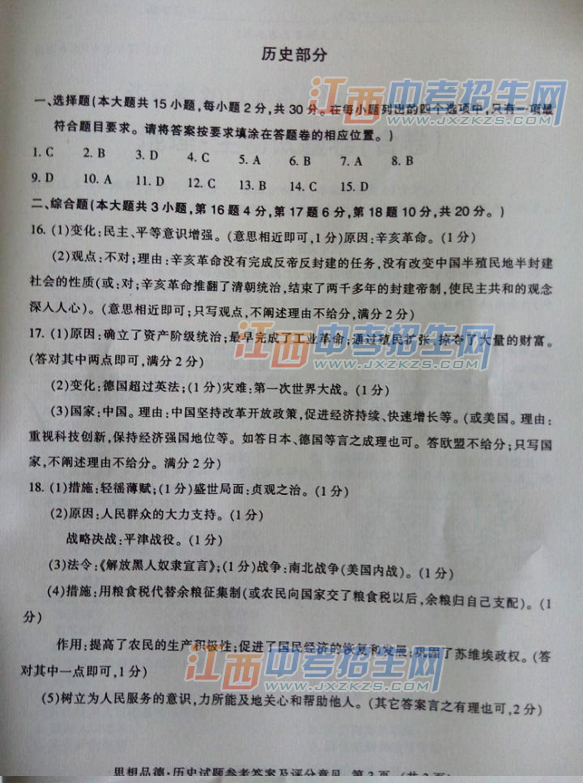 历史部分
一、选择题(本大题共15小题,每小题2分,共30分。在每小题列出的四个选项中,只有一项最
符合题目要求。请将答案按要求填涂在答题卷的相应位置。)
1. C 2. B 3. D 4. C 5. A 6. B 7. A 8. B
9. D 10. A 11. D 12. C 13. B 14. C 15. D
二、综合题(本大题共3小题,第16题4分,第17题6分,第18题10分,共20分。)
16. (1)变化:民主、平等意识增强。(意思相近即可,1分)原因:辛亥革命。(1分)
(2)观点:不对;理由:辛亥革命没有完成反帝反封建的任务,没有改变中国半殖民地半封建
社会的性质(或:对;辛亥革命推翻了清朝统治,结束了两千多年的封建帝制,使民主共和的观念
深入人心)。(意思相近即可;只写观点,不阐述理由不给分,满分2分)
17. (1)原因:确立了资产阶级统治;最早完成了工业革命;通过殖民扩张、掠夺了大量的财富。
(答对其中两点即可,满分2分)
(2)变化:德国超过英法;(1分)灾难:第一次世界大战。(1分)
(3)国家:中国。理由:中国坚持改革开放政策,促进经济持续、快速增长等。(或美国。理由:
重视科技创新,保持经济强国地位等。如答日本、德国等言之成理也可。答欧盟不给分;只写国
家,不阐述理由不给分。满分2分)
18. (1)措施:轻徭薄赋;(1分)盛世局面:贞观之治。(1分)
(2)原因:人民群众的大力支持。(1分)
战略决战:平津战役。(1分)
(3)法令:《解放黑人奴隶宣言》;(1分)战争:南北战争(美国内战)。(1分)
(4)措施:用粮食税代替余粮征集制(或农民向国家交了粮食税以后,余粮归自己支配)。(1
分)
作用:提高了农民的生产积极性;促进了国民经济的恢复和发展;巩固了苏维埃政权。(答
对其中一点即可,1分)
(5)树立为人民服务的意识,力所能及地关心和帮助他人。(其它答案言之有理也可,2分)
思想品德·历史试题参考答案及评分意见 第2页 (共2页)
江西中考招生网
WWW.JXZKZS.COM
江西中考招生网
WWW.JXZKZS.COM
江西中考招生网
WWW.JXZKZS.COM